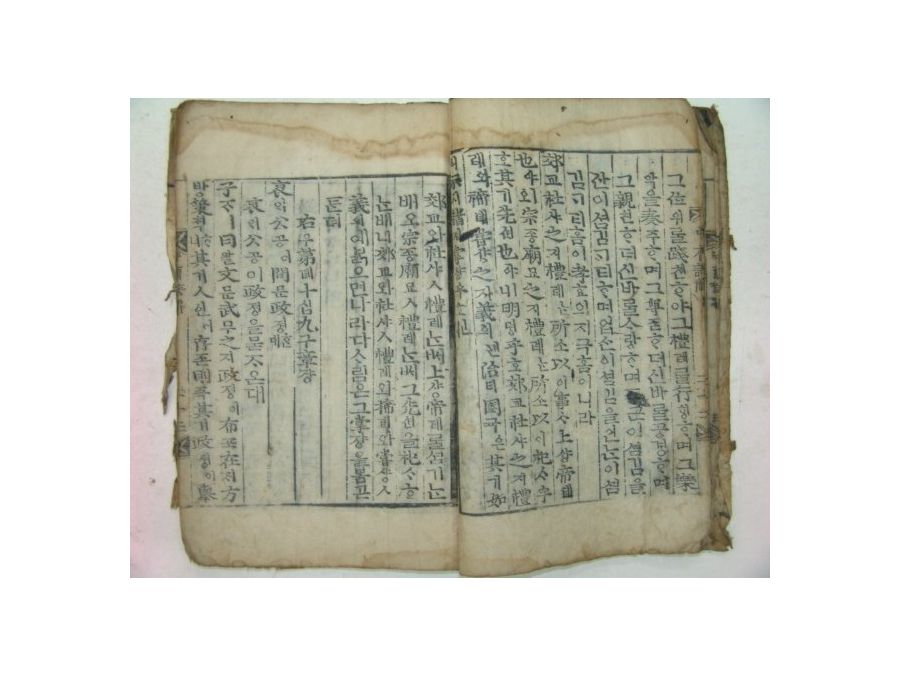 그位위ᄅᆞᆯ踐쳔ᄒᆞ야그禮례ᄅᆞᆯ行ᄒᆡᆼᄒᆞ며그樂
악을奏주ᄒᆞ며그尊존ᄒᆞ던신바ᄅᆞᆯ공경ᄒᆞ며
그親친ᄒᆞ던신바ᄅᆞᆯᄉᆞ랑ᄒᆞ며은이셤김을
산이셤김ᄀᆞ티ᄒᆞ며업슨이셤김을인ᄂᆞᆫ이셤
김ᄀᆞ티홈이孝효의지극홈이니라
郊교社샤之지禮례ᄂᆞᆫ所소以이事ᄉᆞ上샹帝뎨
也야ㅣ오宗종廟묘之지禮례ᄂᆞᆫ所소以이祀ᄉᆞ乎
호其기先션也야ㅣ니明명乎호郊교社샤之지禮
례와禘톄嘗샹之지義의면治티國국은其기如
郊교와社샤ㅅ禮례ᄂᆞᆫᄡᅥ上샹帝뎨ᄅᆞᆯ셤기ᄂᆞᆫ
배오宗종廟묘ㅅ禮례ᄂᆞᆫᄡᅥ그先션을祀ᄉᆞᄒᆞ
ᄂᆞᆫ배니郊교와社샤ㅅ禮례와禘톄와嘗샹ㅅ
義의예ᄇᆞᆰ으면나라다ᄉᆞ림은그掌쟝을봄ᄀᆞᆮ
ᄐᆞᆫ뎌
右우ᄂᆞᆫ第뎨十십九구章쟝
哀ᄋᆡ公공이問문政졍ᄒᆞᆫ대
哀ᄋᆡ公공이政졍을묻ᄌᆞ온대
子ᄌᆞㅣ曰왈文문武무之지政졍이布포在ᄌᆡ方
방策ᄎᆡᆨᄒᆞ니其기人인이存존則즉其기政졍이擧